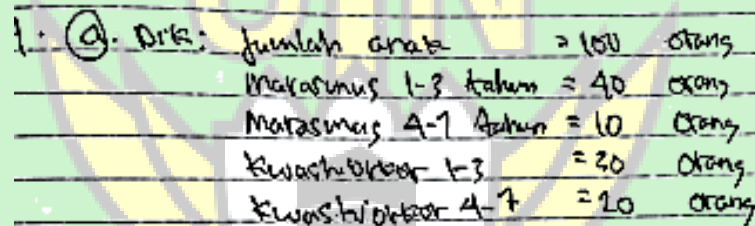 1. a. Dik: Jumlah anak = 100 orang
Marasmus 1-3 tahun = 40 orang
Marasmus 4-7 tahun = 10 orang
Kwashiorkor 1-3 = 30 orang
Kwashiorkor 4-7 = 20 orang